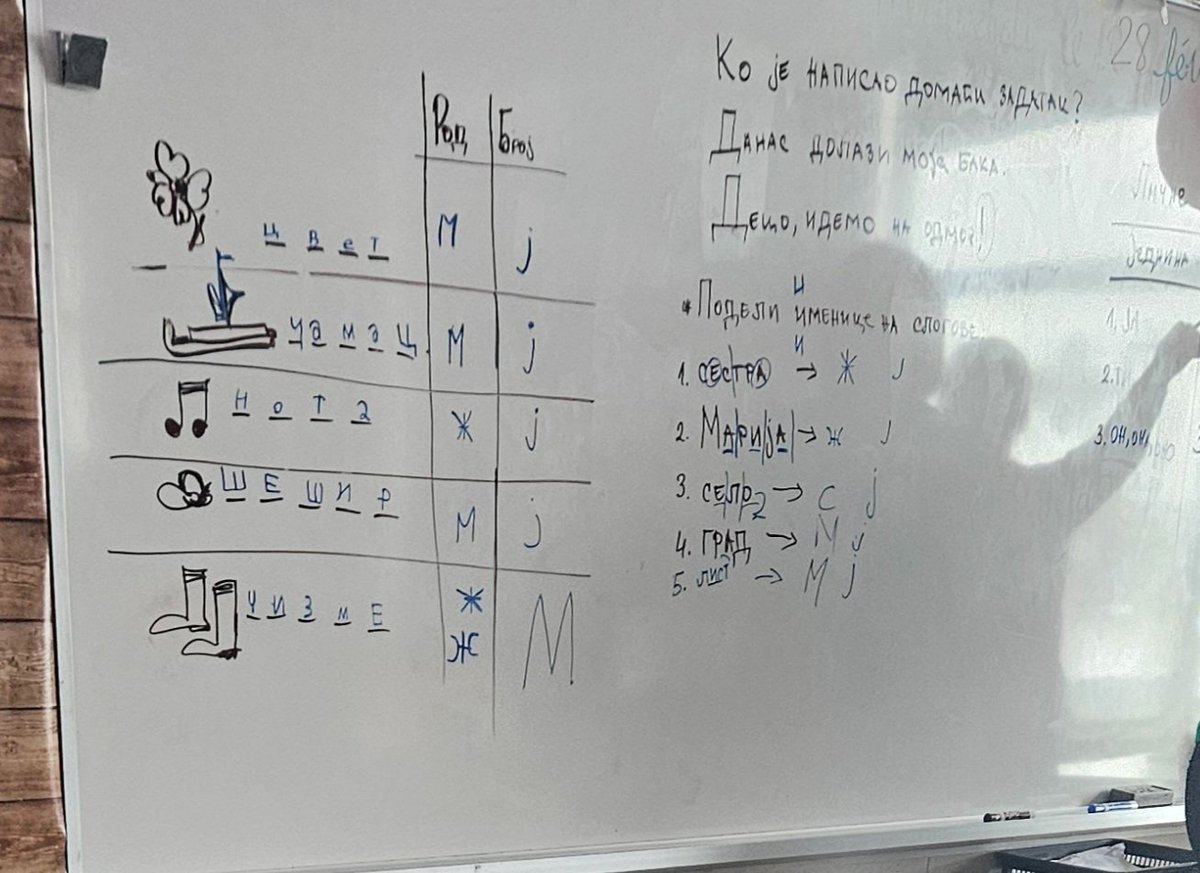 Род Број
цвет М ј
чамац М ј
нота Ж ј
ШЕШИР М ј
чизмЕ Ж М
Ж
Ко је написао домаћи задатак?
Данас долази моја бака.
Децо, идемо на одмор!
и
Подели именице на слогове.
и
1. СЕСТРА → Ж Ј
2. МА|РИ|ЈА| → Ж Ј
3. → С ј
4. ГРАД → М ј
5. лист → М ј
28 fév
Личне
једнина
1. ЈА
2. Т
3. ОН, ОНА,